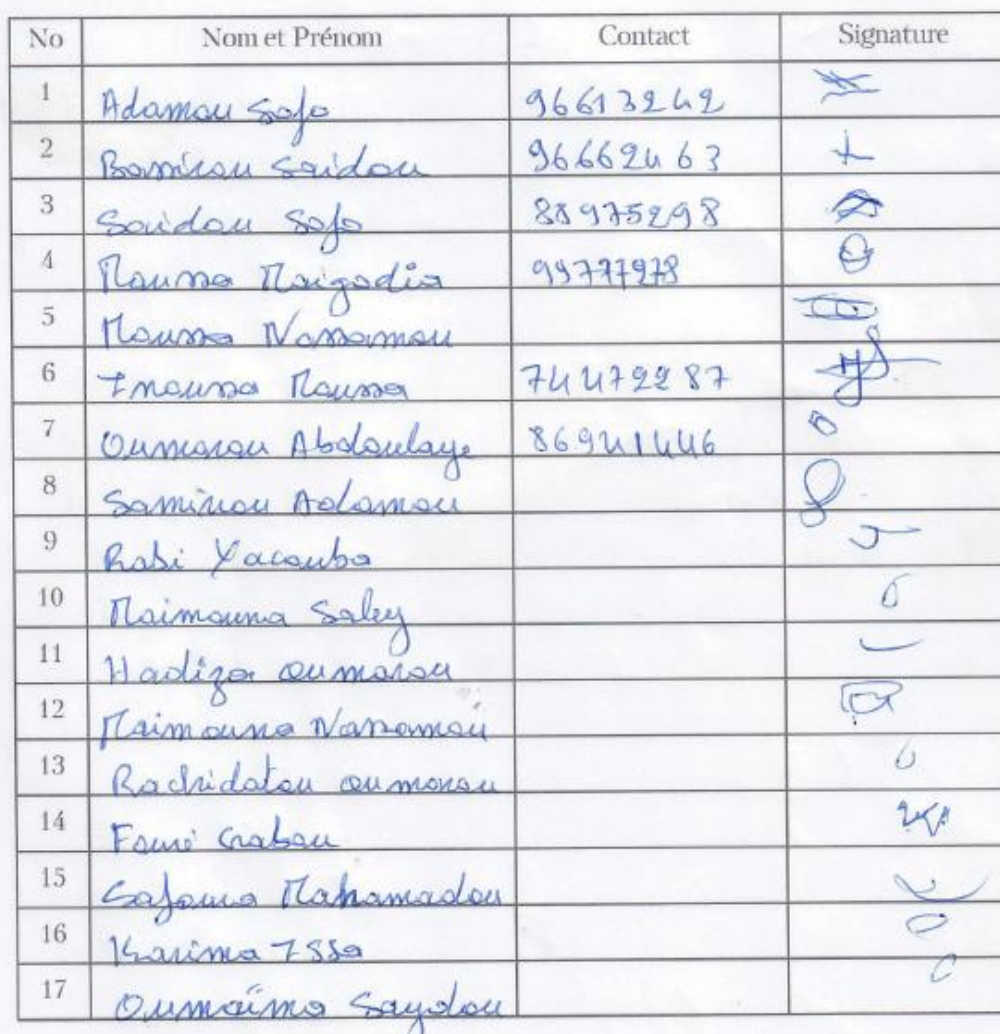 No Nom et Prénom Contact Signature
1 Adamou Sofo 96613242
2 Bassirou Saidou 96662463
3 Saidou Sofo 88975298
4 Moussa Maigadia 99777978
5 Moussa Nassamou
6 Inoussa Moussa 74472287
7 Oumarou Abdoulaye 86941446
8 Saminou Adamou
9 Rabi Yacouba
10 Maimouna Saley
11 Hadiza oumarou
12 Maimouna Nassamou
13 Rachidatou oumarou
14
15 Mahamadou
16 Karima Issa
17 Oumaïma Saydou